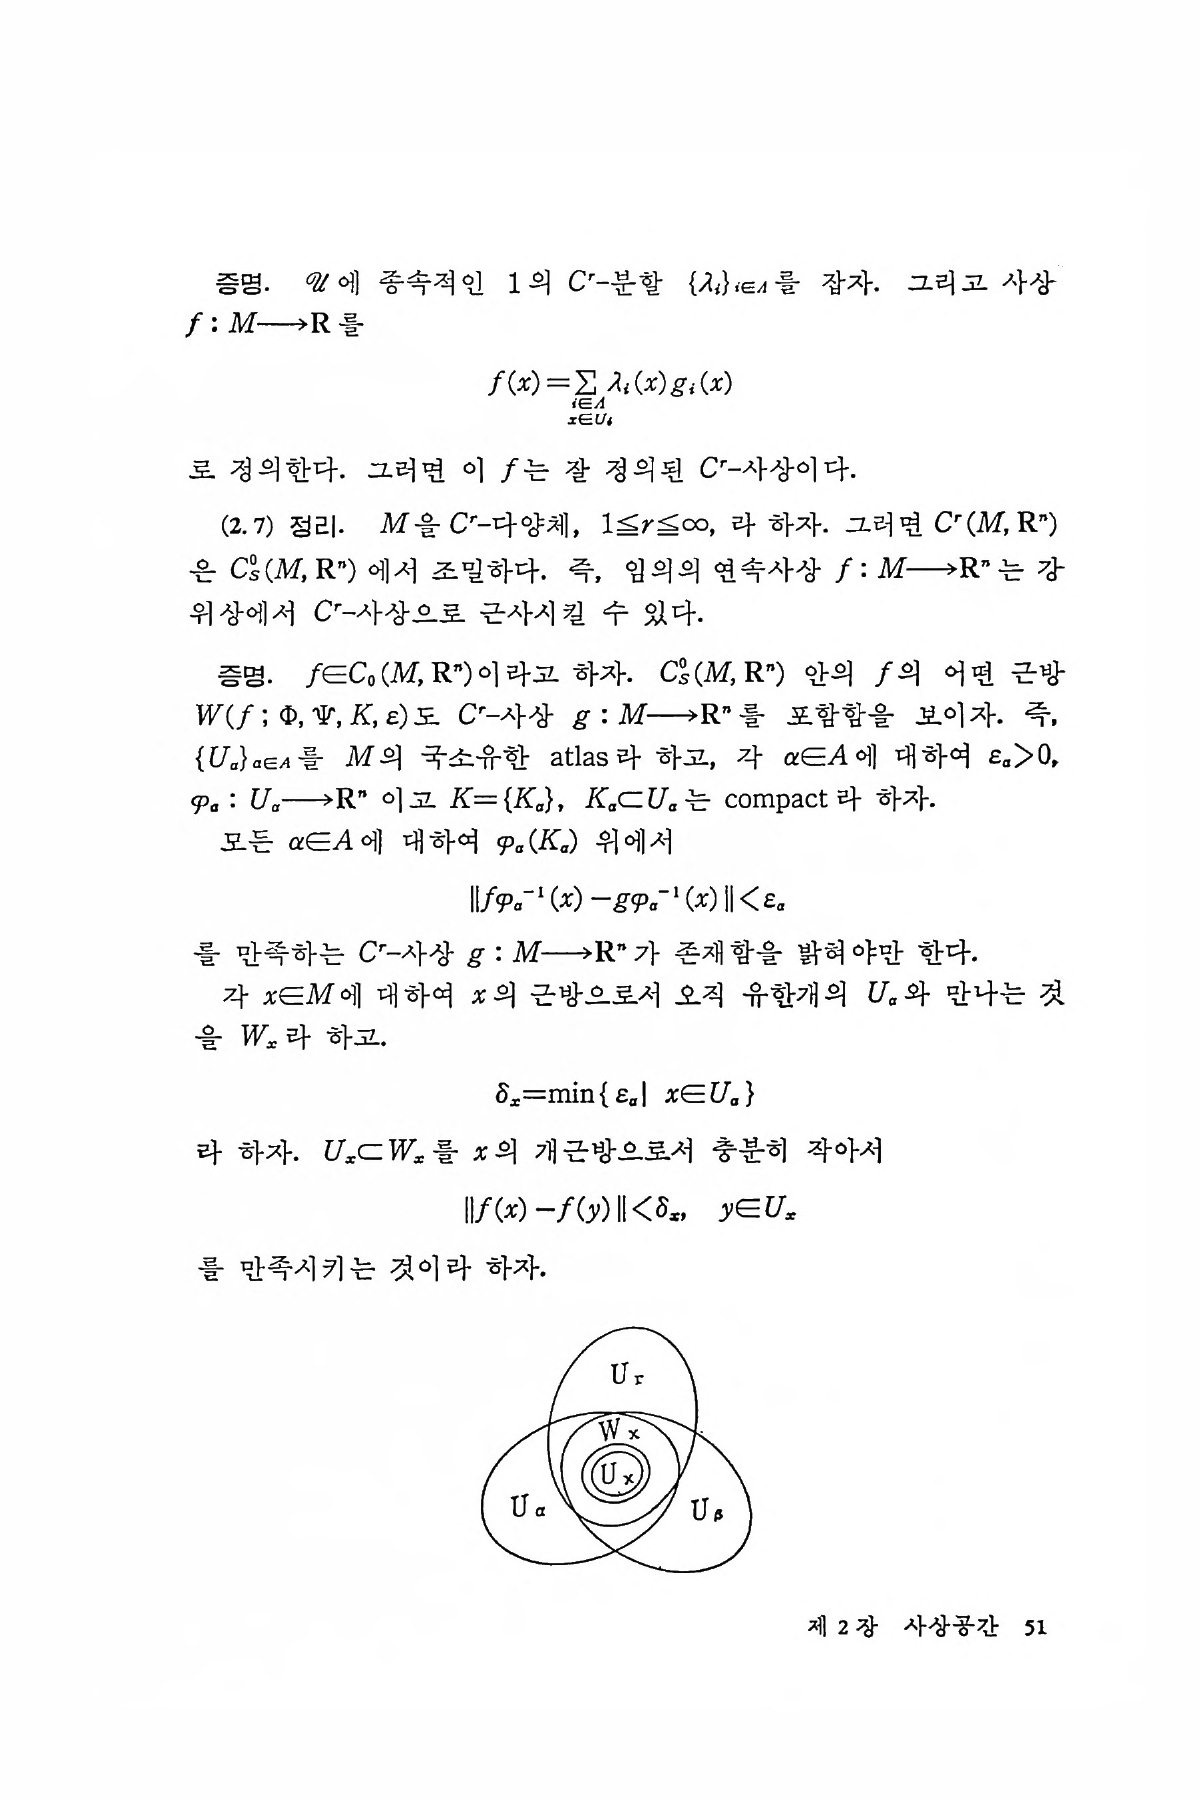 증명. 𝒰에 종속적인 1의 Cʳ-분할 {λᵢ}ᵢ∈Λ를 잡자. 그리고 사상
f : M⟶R를
f(x)=∑λᵢ(x)gᵢ(x)
i∈Λ
x∈Uᵢ
로 정의한다. 그러면 이 f는 잘 정의된 Cʳ-사상이다.
(2.7) 정리. M을 Cʳ-다양체, 1≦r≦∞, 라 하자. 그러면 Cʳ(M, Rⁿ)
은 C⁰ₛ(M, Rⁿ)에서 조밀하다. 즉, 임의의 연속사상 f : M⟶Rⁿ는 강
위상에서 Cʳ-사상으로 근사시킬 수 있다.
증명. f∈C₀(M, Rⁿ)이라고 하자. C⁰ₛ(M, Rⁿ) 안의 f의 어떤 근방
W(f ; Φ, Ψ, K, ε)도 Cʳ-사상 g : M⟶Rⁿ를 포함함을 보이자. 즉,
{U_α}_α∈A를 M의 국소유한 atlas라 하고, 각 α∈A에 대하여 ε_α>0,
φ_α : U_α⟶Rⁿ 이고 K={K_α}, K_α⊂U_α는 compact라 하자.
모든 α∈A에 대하여 φ_α(K_α) 위에서
‖fφ_α⁻¹(x)−gφ_α⁻¹(x)‖<ε_α
를 만족하는 Cʳ-사상 g : M⟶Rⁿ가 존재함을 밝혀야만 한다.
각 x∈M에 대하여 x의 근방으로서 오직 유한개의 U_α와 만나는 것
을 Wₓ라 하고.
δₓ=min{ε_α| x∈U_α}
라 하자. Uₓ⊂Wₓ를 x의 개근방으로서 충분히 작아서
‖f(x)−f(y)‖<δₓ, y∈Uₓ
를 만족시키는 것이라 하자.
U_r
Wₓ
Uₓ
U_α
U_β
제 2 장 사상공간 51